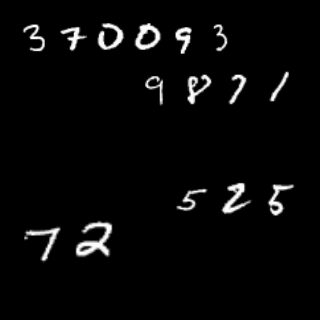 370093
9871
525
72